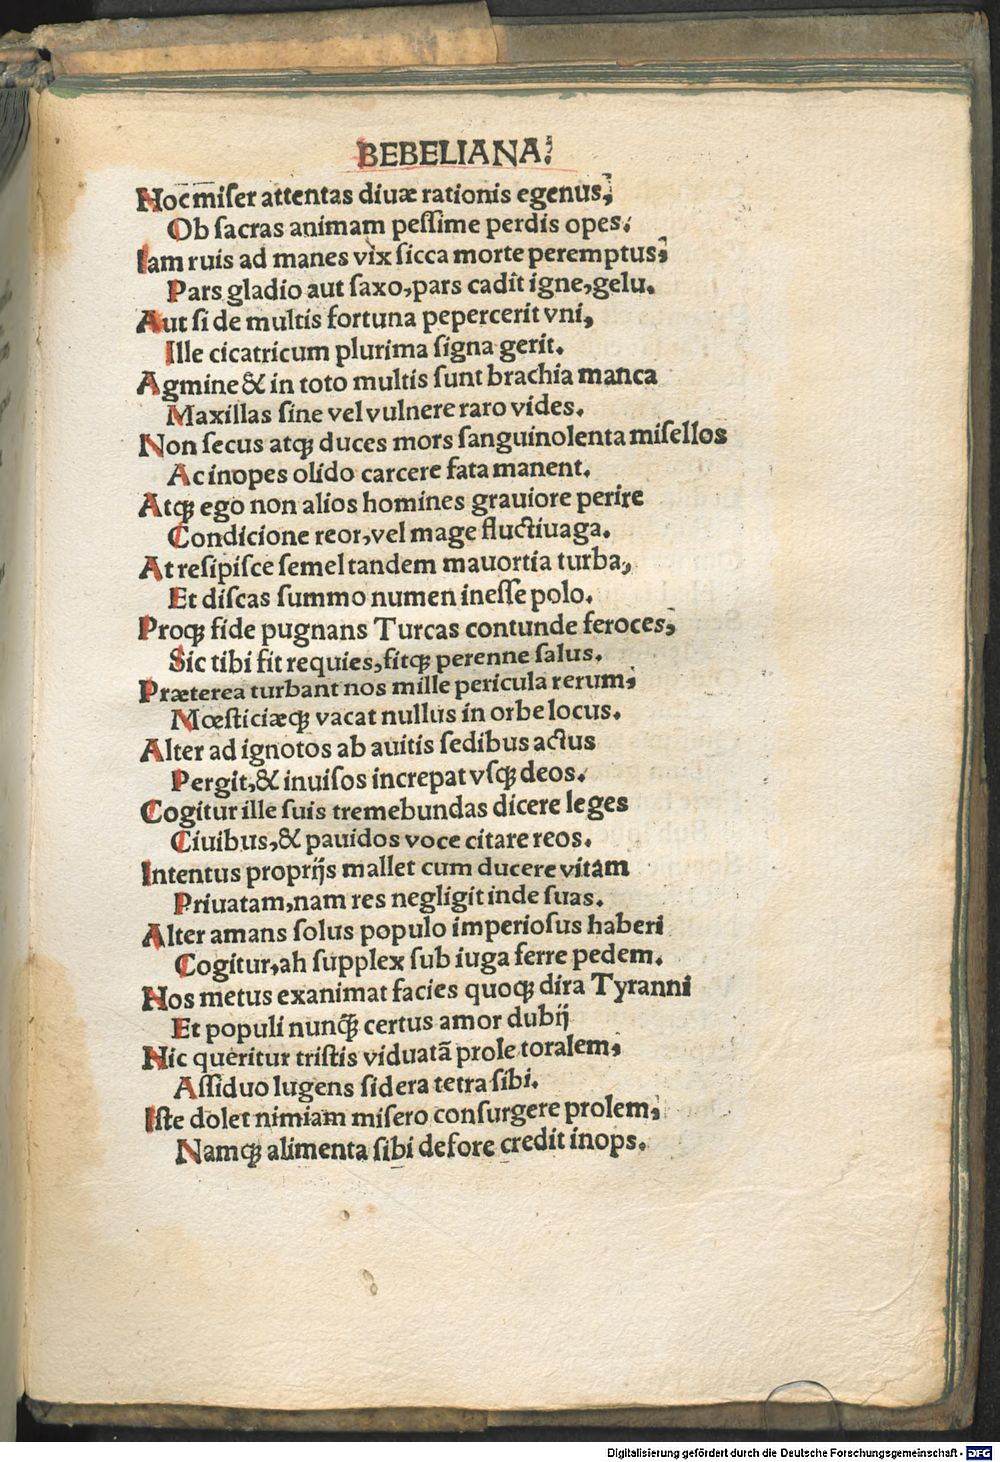 BEBELIANA.
Hoc miſer attentas diuæ rationis egenus,
Ob ſacras animam peſſime perdis opes.
Iam ruis ad manes vix ſicca morte peremptus,
Pars gladio aut ſaxo, pars cadit igne, gelu.
Aut ſi de multis fortuna pepercerit vni,
Ille cicatricum plurima ſigna gerit.
Agmine & in toto multis ſunt brachia manca
Maxillas ſine vel vulnere raro vides.
Non ſecus atqꝫ duces mors ſanguinolenta miſellos
Ac inopes olido carcere fata manent.
Atqꝫ ego non alios homines grauiore perire
Condicione reor, vel mage fluctiuaga.
At reſipiſce ſemel tandem mauortia turba,
Et diſcas ſummo numen ineſſe polo.
Proqꝫ fide pugnans Turcas contunde feroces,
Sic tibi fit requies, fitqꝫ perenne ſalus.
Præterea turbant nos mille pericula rerum,
Mœſticiæqꝫ vacat nullus in orbe locus.
Alter ad ignotos ab auitis ſedibus actus
Pergit, & inuiſos increpat vſqꝫ deos.
Cogitur ille ſuis tremebundas dicere leges
Ciuibus, & pauidos voce citare reos.
Intentus proprijs mallet cum ducere vitam
Priuatam, nam res negligit inde ſuas.
Alter amans ſolus populo imperioſus haberi
Cogitur, ah ſupplex ſub iuga ferre pedem.
Nos metus exanimat facies quoqꝫ dira Tyranni
Et populi nunꝗ̃ certus amor dubij
Hic queritur triſtis viduatã prole toralem,
Aſſiduo lugens ſidera tetra ſibi.
Iſte dolet nimiam miſero conſurgere prolem,
Namqꝫ alimenta ſibi defore credit inops.
Digitalisierung gefördert durch die Deutsche Forschungsgemeinschaft - DFG